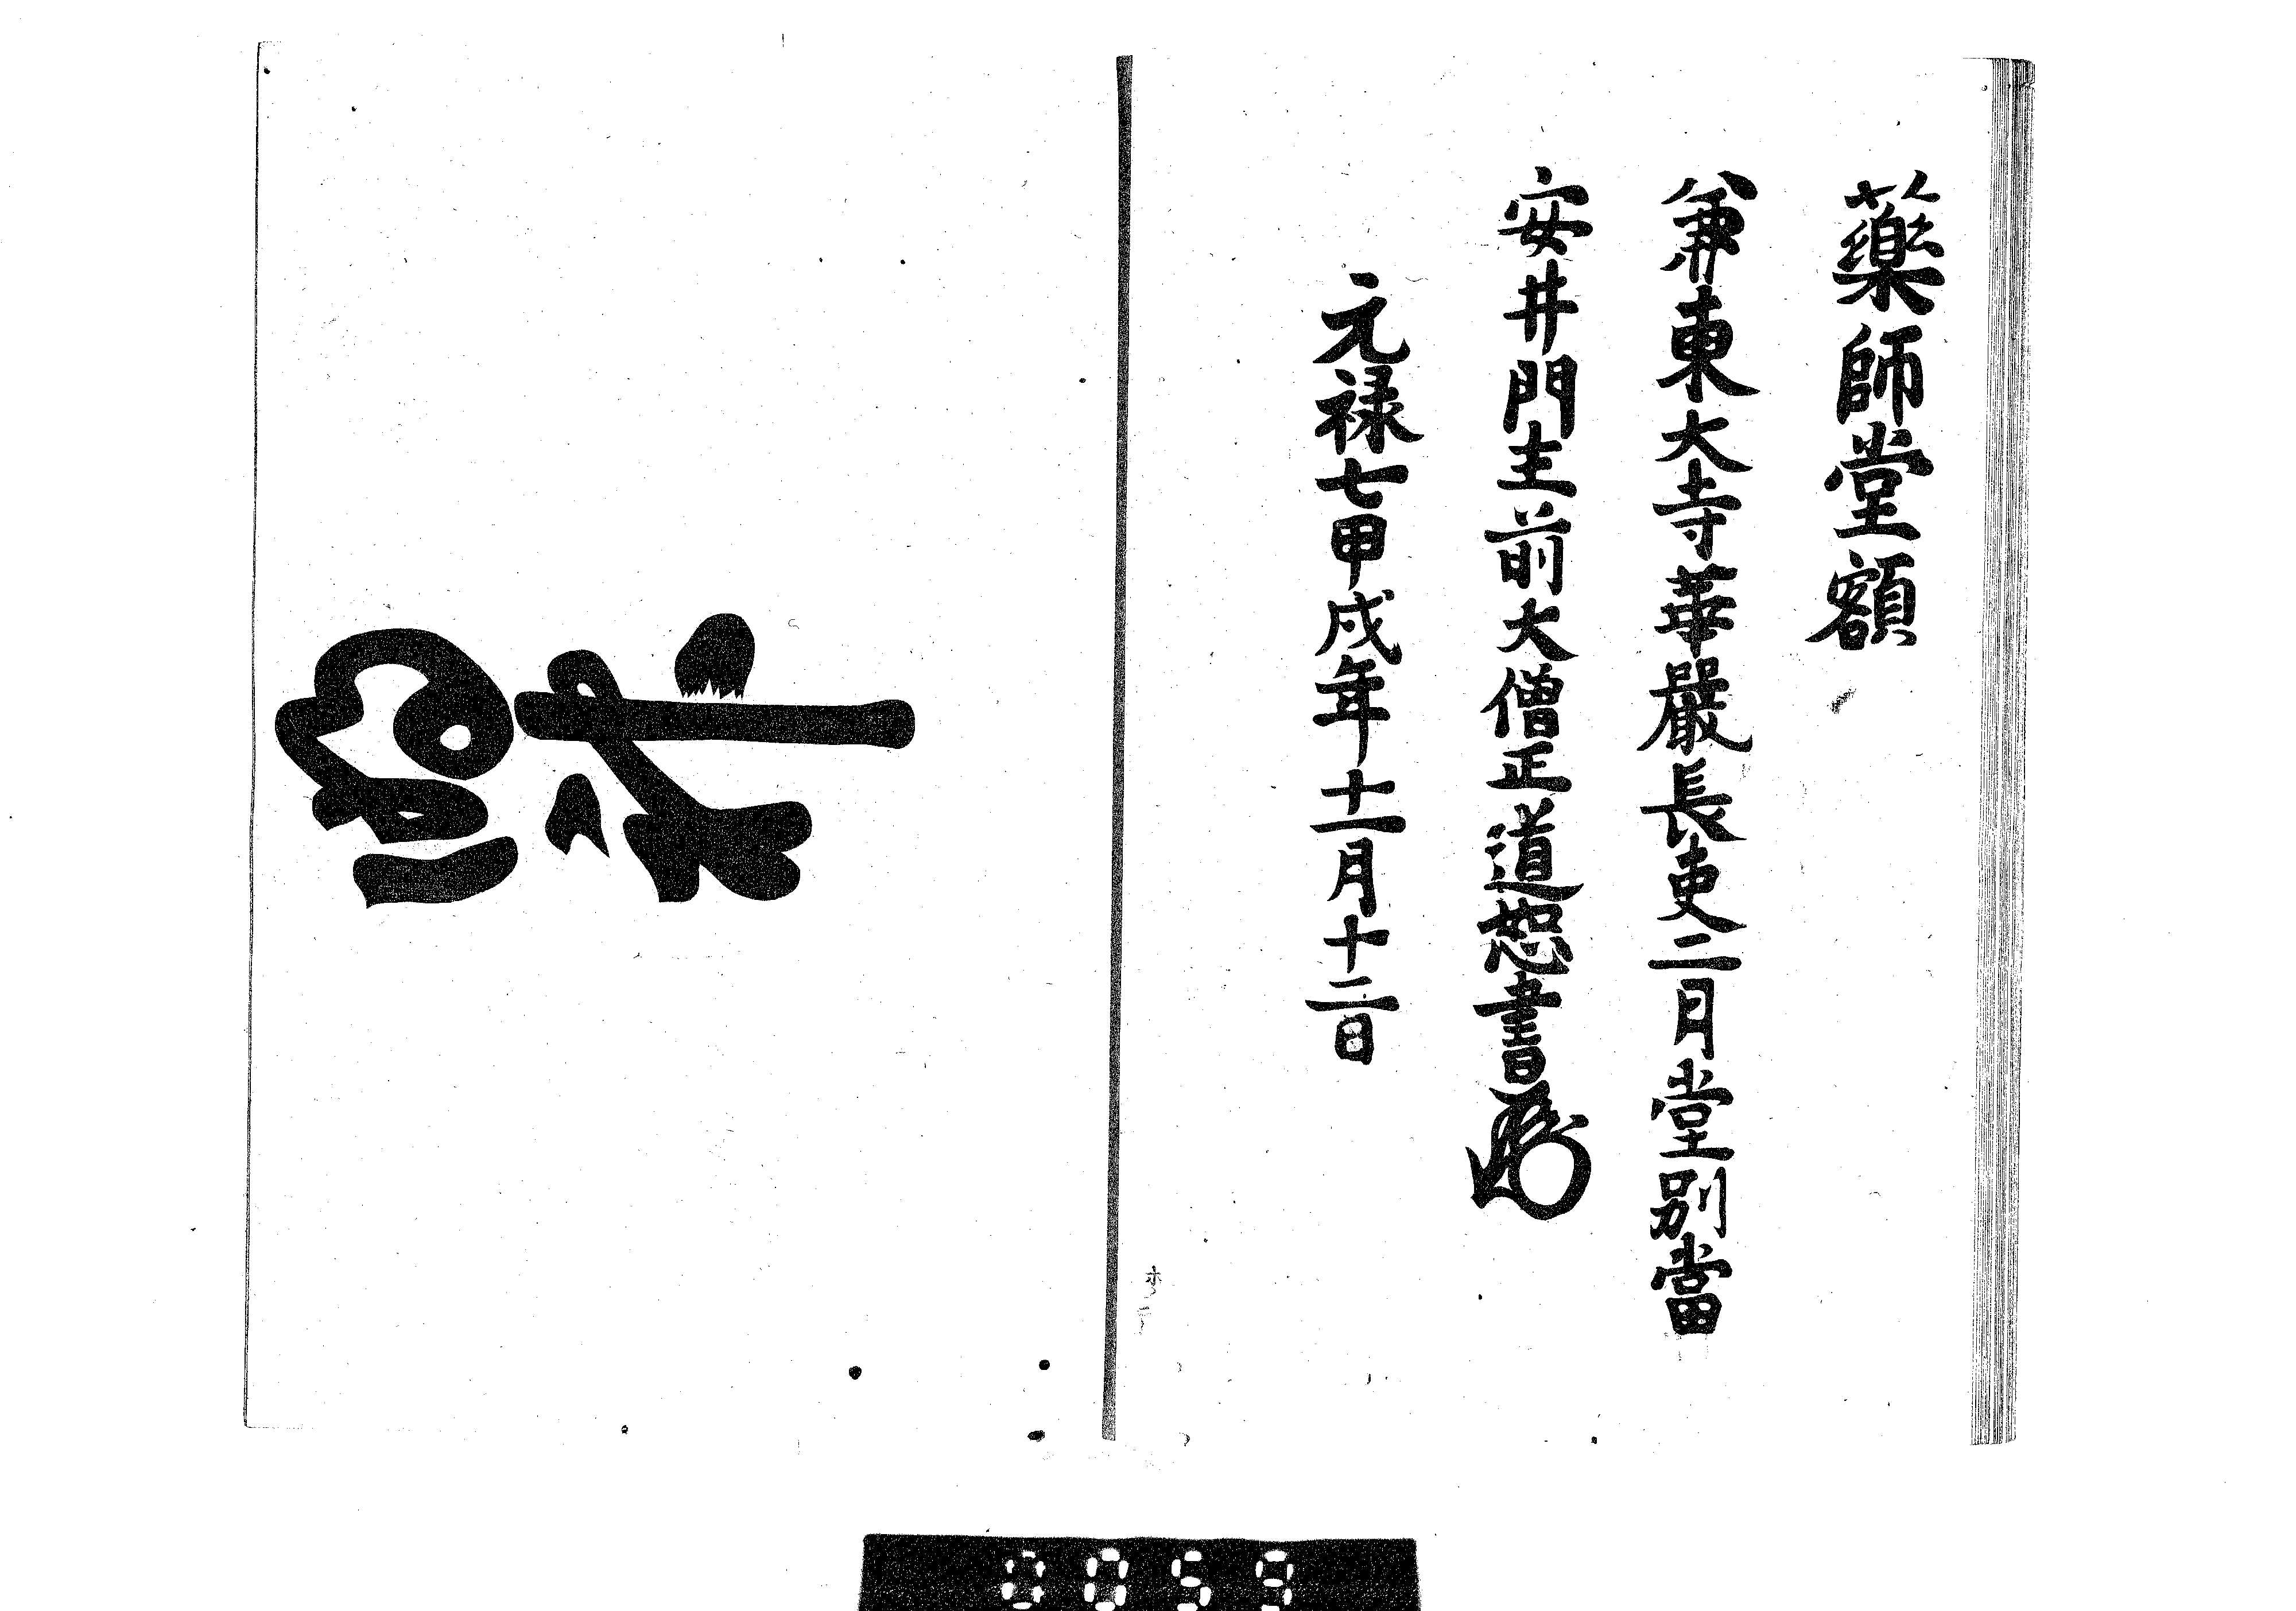 藥師堂額
兼東大寺華嚴長吏二月堂別當
安井門主前大僧正道恕書
元禄七甲戌年十一月十二日
0059